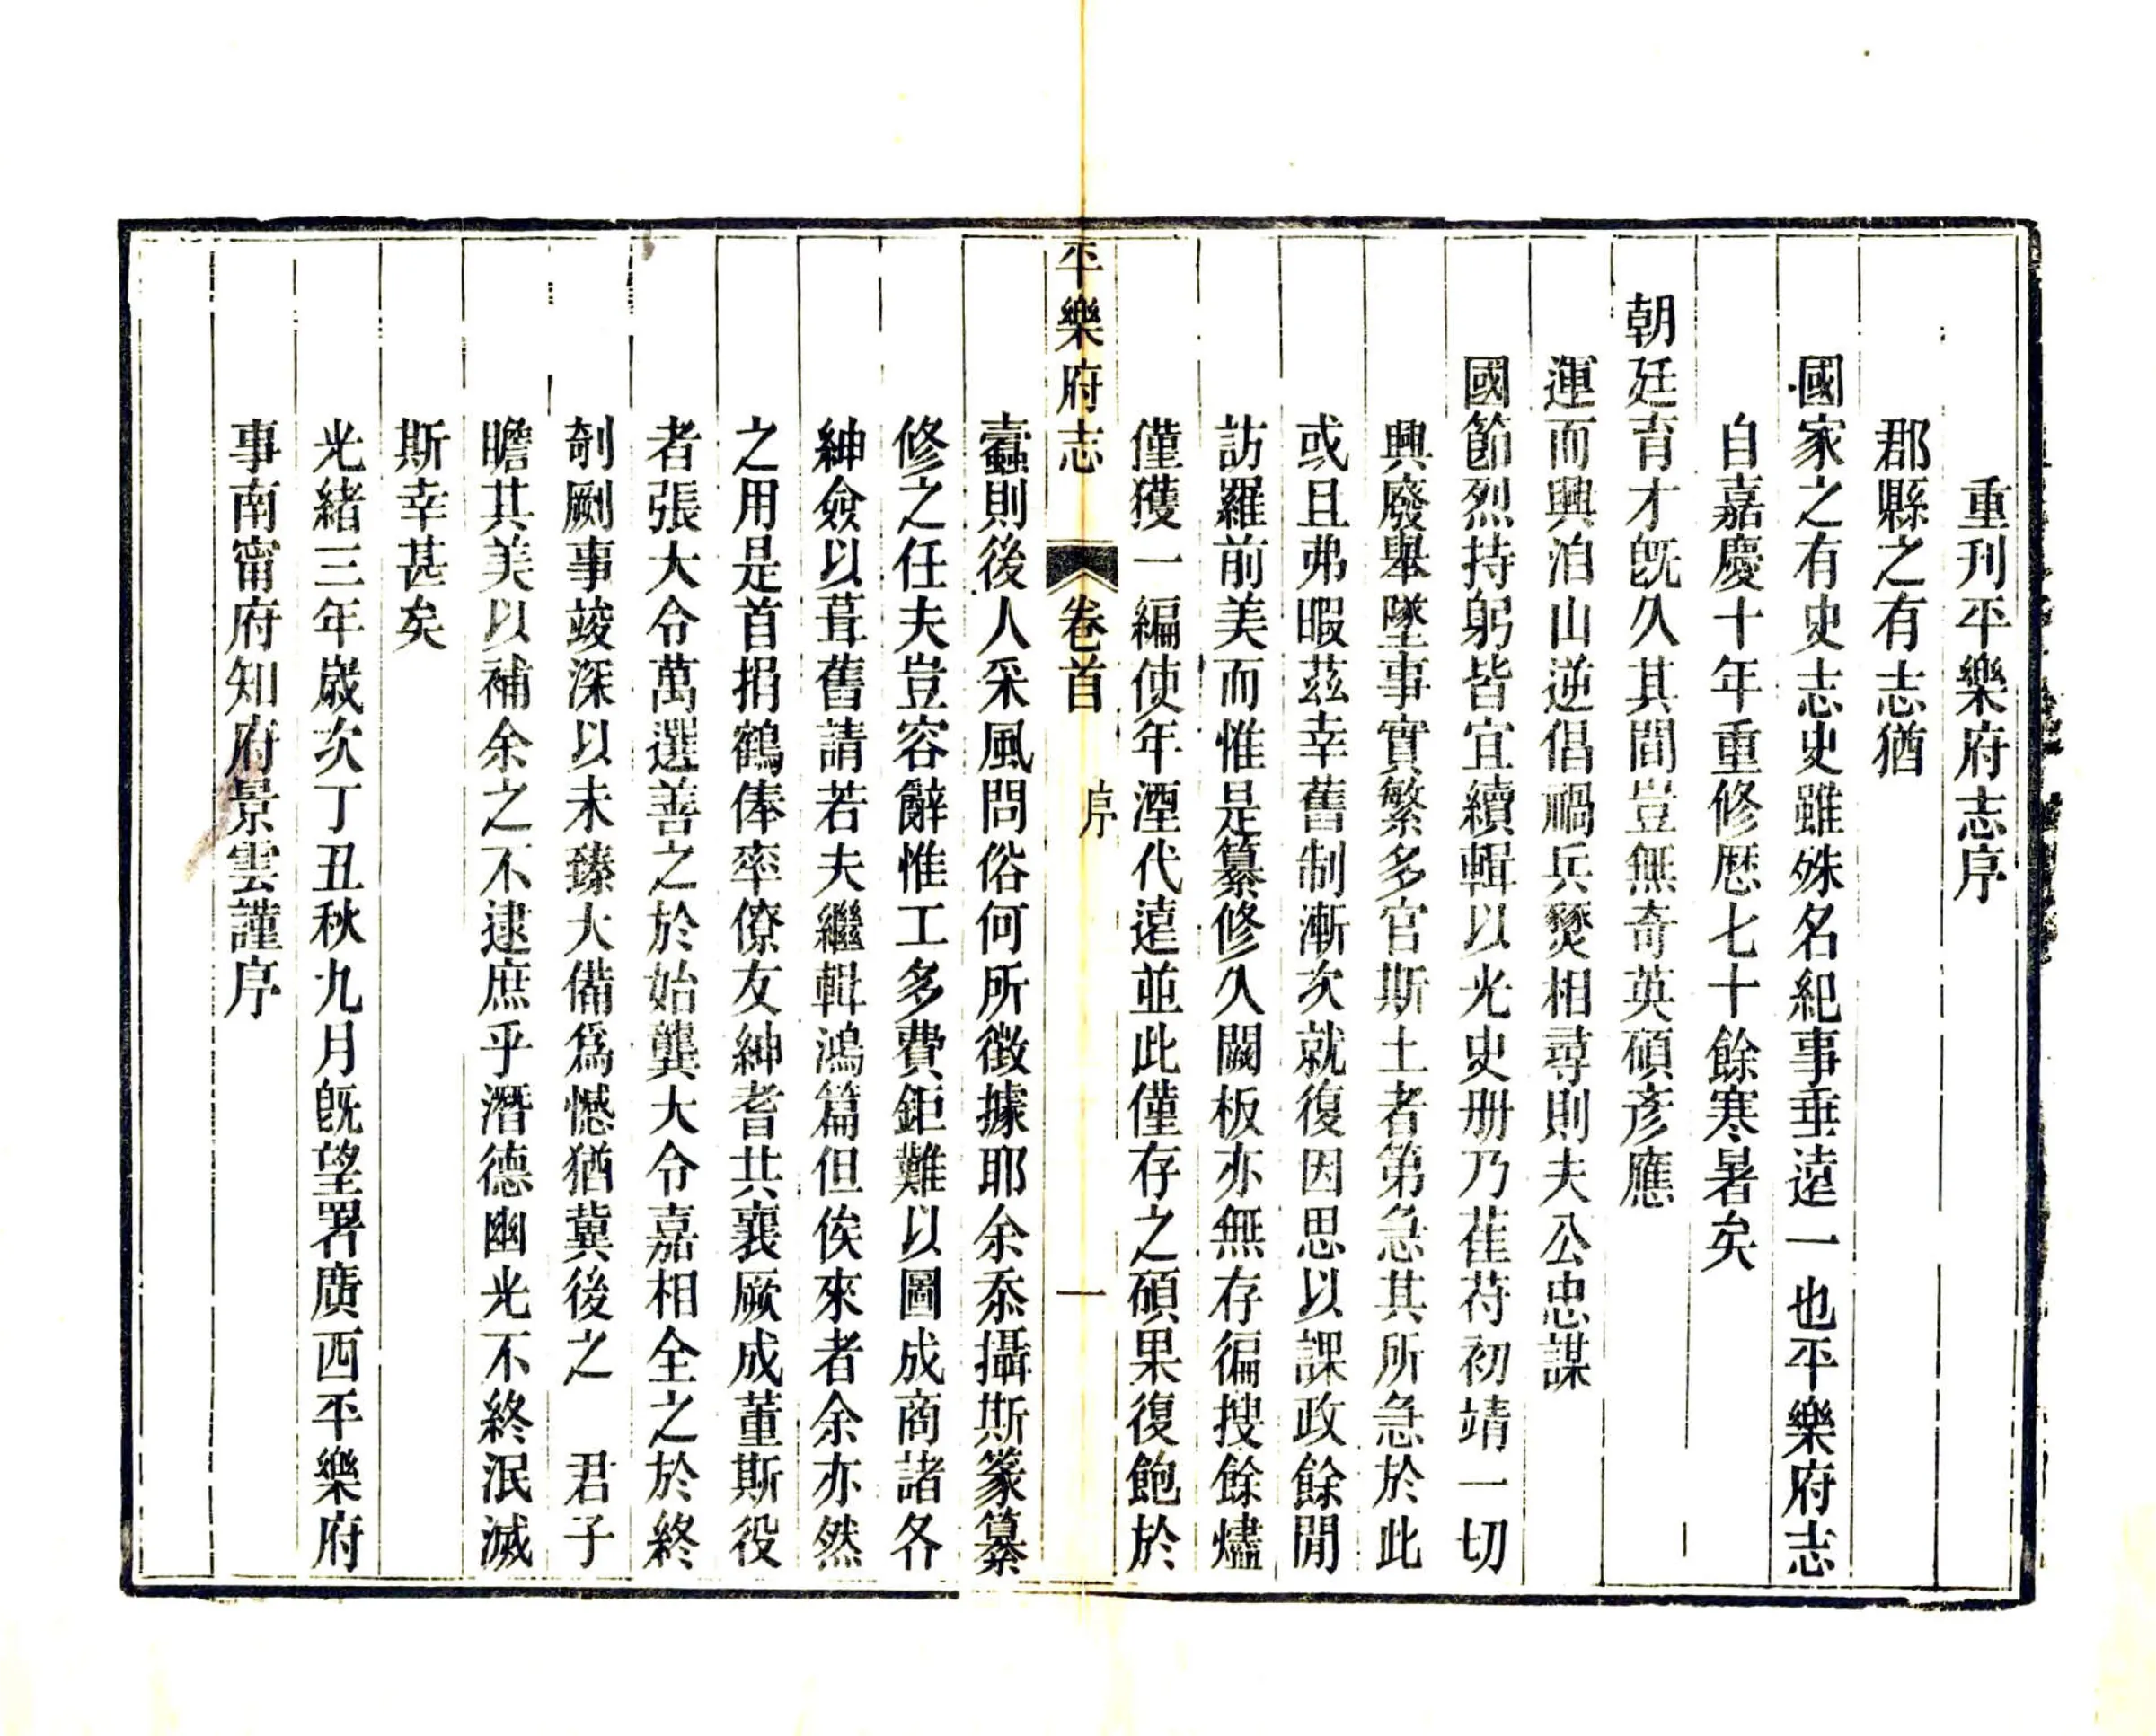 重刊平樂府志序
郡縣之有志猶
國家之有史志史雖殊名紀事垂遠一也平樂府志
自嘉慶十年重修歷七十餘寒暑矣
朝廷育才旣久其間豈無奇英碩彥應
運而興洎山逆倡禍兵燹相尋則夫公忠謀
國節烈持躬皆宜續輯以光史册乃萑苻初靖一切
興廢舉墜事實繁多官斯土者第急其所急於此
或且弗暇茲幸舊制漸次就復因思以課政餘閒
訪羅前美而惟是纂修久闕板亦無存徧搜餘燼
僅獲一編使年湮代遠並此僅存之碩果復飽於
平樂府志 卷首 序 一
蠹則後人采風問俗何所徵據耶余忝攝斯篆纂
修之任夫豈容辭惟工多費鉅難以圖成商諸各
紳僉以葺舊請若夫繼輯鴻篇但俟來者余亦然
之用是首捐鶴俸率僚友紳耆共襄厥成董斯役
者張大令萬選善之於始龔大令嘉相全之於終
剞劂事竣深以未臻大備爲憾猶冀後之 君子
瞻其美以補余之不逮庶乎潛德幽光不終泯滅
斯幸甚矣
光緒三年歲次丁丑秋九月旣望署廣西平樂府
事南甯府知府景雲謹序